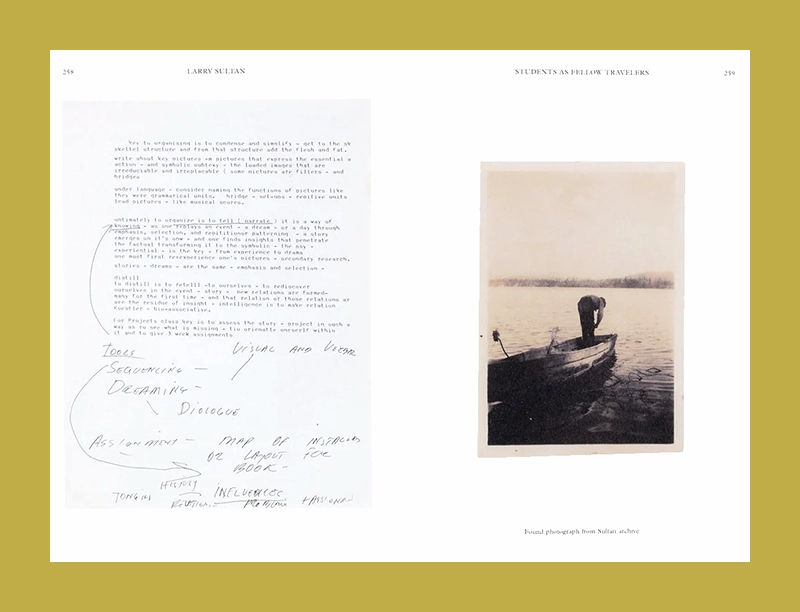 258
LARRY SULTAN
Key to organizing is to condense and simplify - get to the sk
skeltel structure and from that structure add the flesh and fat.
write about key pictures -m pictures that express the essential a
action - and symbolic subtexy - the loaded images that are
irreducible and irreplacable ( some pictures are fillers - and
bridges
under language - consider naming the functions of pictures like
they were grammarical units. bridge - set-ups - repitive units
lead pictures - like musical scores.
untimately to organize is to tell ( narrate ) it is a way of
knowing - as one replays an event - a dream - or a day through
emphasis, selection, and repititionar patterning - a story
emerges on it's onw - and one finds insights that penetrate
the factual transforming it to the symbolic - the psy -
experiential - is the key - from experience to drama
one must first reexperience one's pictures - secondary research.
stories - dreams - are the same - emphasis and selection -
distill
to distill is to retell -to ourselves - to rediscover
ourselves in the event - story - new relations are formed-
many for the first time - and that relation or those relations ar
are the residue of insight - intelligence is to make relation
Koestler - bio-associative.
For Projects class key is to assess the story - project in such a
way as to see what is missing - to orienatte oneself within
it and to give 3 week assignments
TOOLS
VISUAL AND VERBAL
SEQUENCING -
DREAMING -
DIOLOGUE
ASSIGNMENT - MAP OF
OR LAYOUT FOR
BOOK -
HISTORY
INFLUENCES
STUDENTS AS FELLOW TRAVELERS
259
Found photograph from Sultan archive